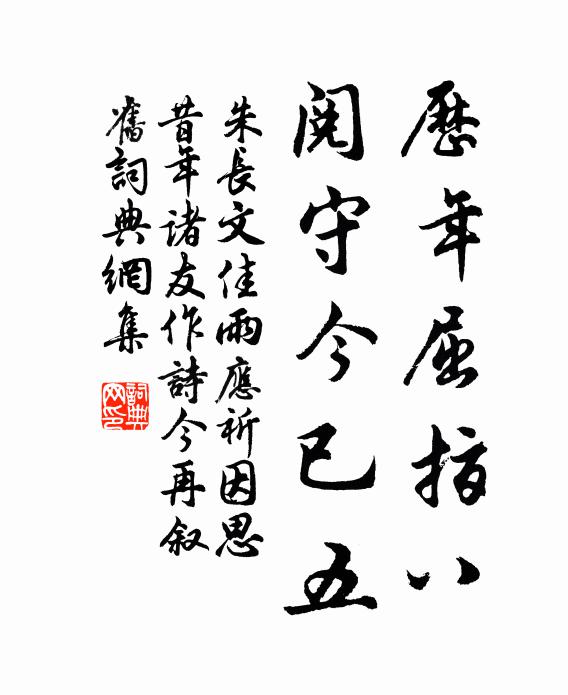 歷年屈指八
閱守今已五
朱長文佳雨應祈因思
昔年諸友作詩今再叙
舊詞典網集
詞典網印